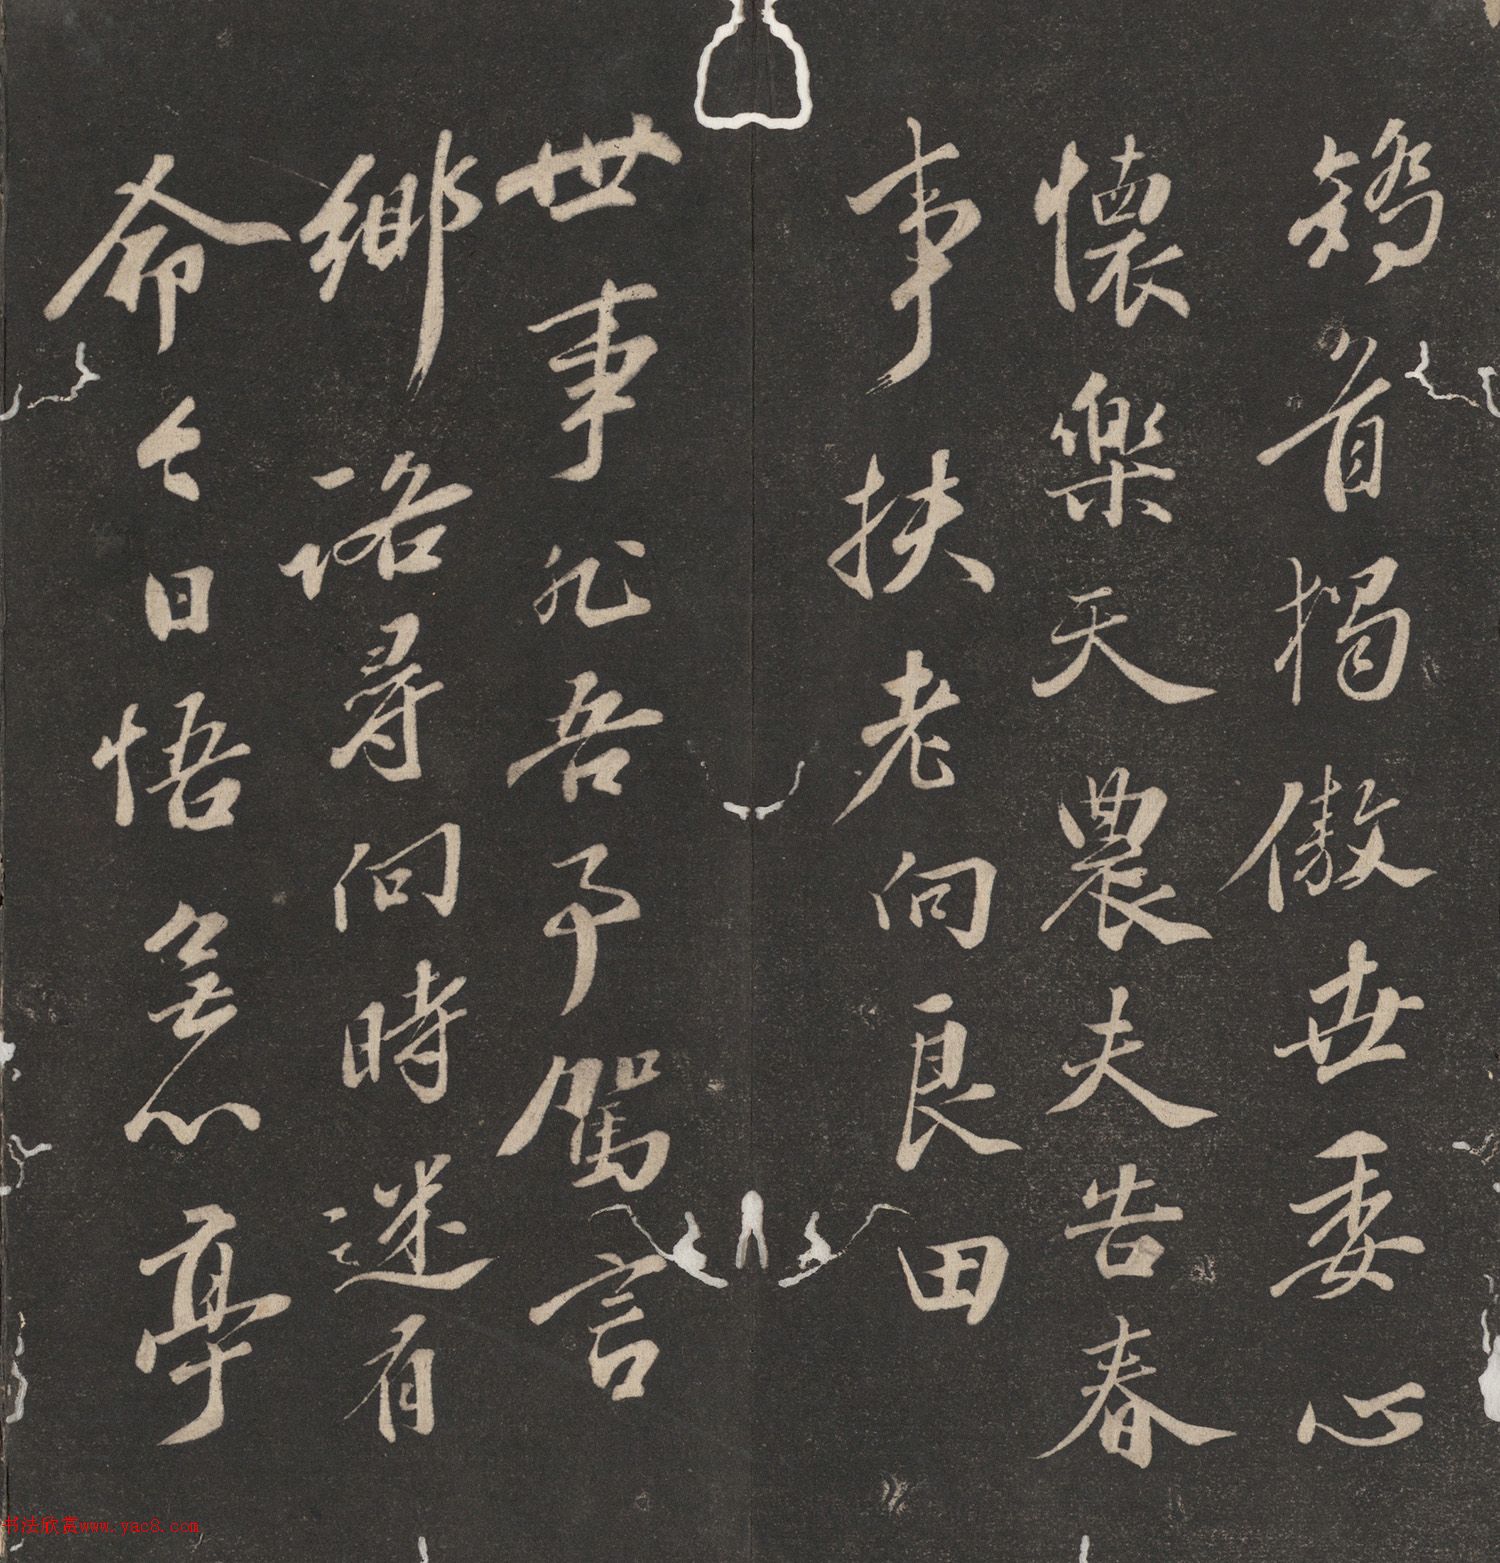 矯首揭傲世委心
懷樂天農夫告春
事扶老向良田
世事非吾予駕言
鄉路尋向時迷有
命今日悟亭
书法欣赏www.yac8.com